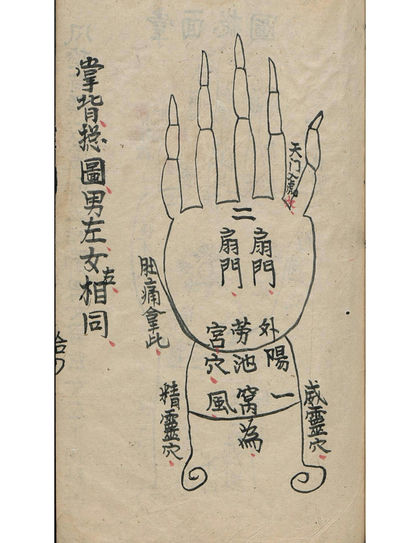 掌背捴圖男左女右相同
天门
二
扇門
扇門
肚痛拿此
外勞宮
陽池穴
一窩風
為
威靈穴
精靈穴